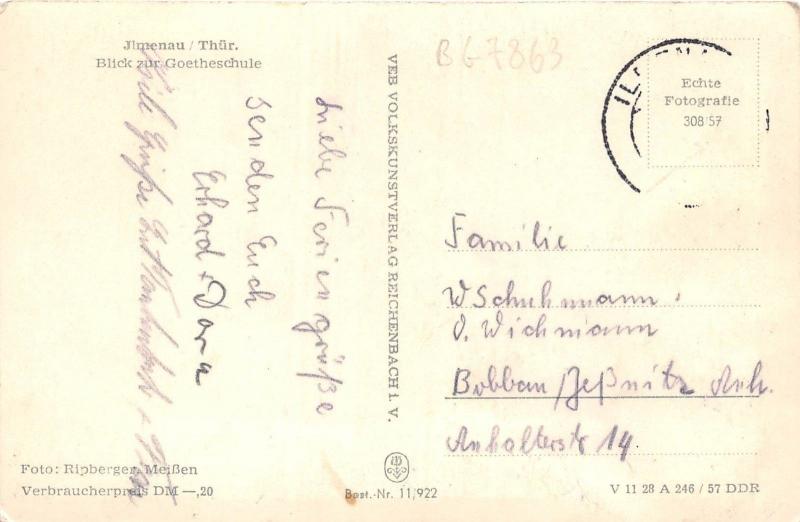 Jlmenau / Thür.
Blick zur Goetheschule
BG 7863
Echte
Fotografie
308/57
VEB VOLKSKUNSTVERLAG REICHENBACH I. V.
Liebe Feriengrüße
senden Euch
Erhard + Dora
Viele Grüße
Familie
W Schuhmann.
O. Wichmann
Bobbau/Jeßnitz Anh.
Anhalterstr 14.
Foto: Ripberger, Meißen
Verbraucherpreis DM —,20
Best.-Nr. 11/922
V 11 28 A 246 / 57 DDR